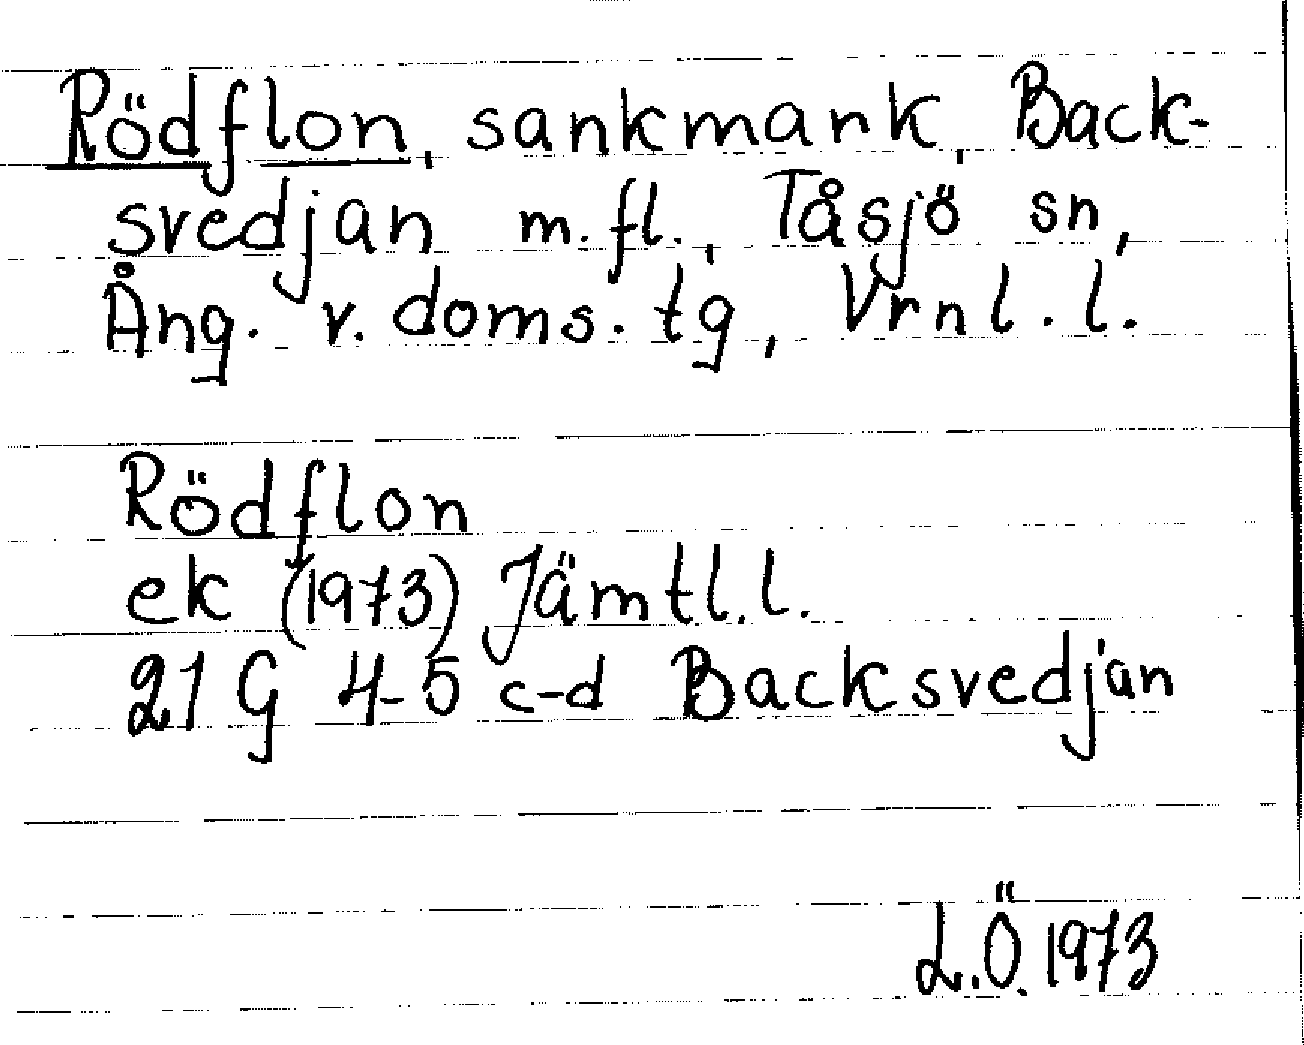 Rödflon, sankmark, Back-
svedjan m.fl., Tåsjö sn,
Ång. v. doms. tg, Vrnl.l.
Rödflon
ek (1973) Jämtl.l.
21 G 4-5 c-d Backsvedjan
L.Ö. 1973